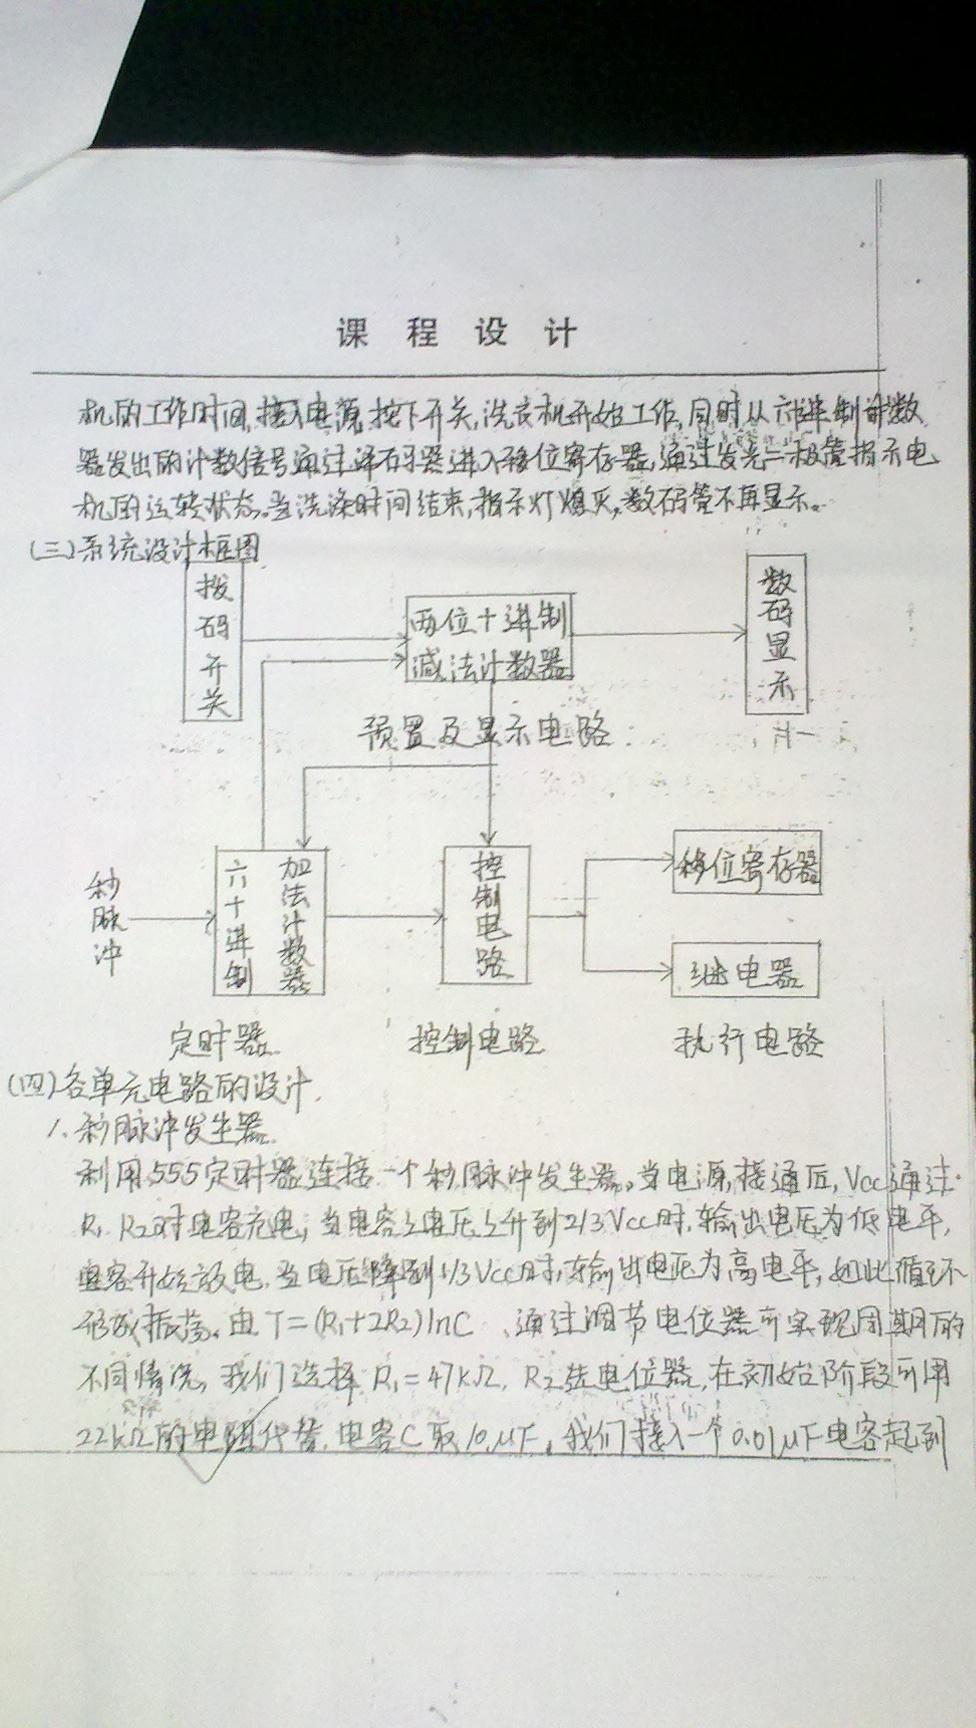 课程设计
机的工作时间,接通电源,按下开关,洗衣机开始工作,同时从六十进制计数
器发出的计数信号通过译码器进入移位寄存器,通过发光二极管指示电
机的运转状态。当洗涤时间结束,指示灯熄灭,数码管不再显示。
(三)系统设计框图
拨码开关
两位十进制
减法计数器
数码显示
预置及显示电路
秒脉冲
六十进制
加法计数器
控制电路
移位寄存器
继电器
定时器
控制电路
执行电路
(四)各单元电路的设计
1、秒脉冲发生器
利用555定时器连接一个秒脉冲发生器。当电源接通后,Vcc通过
R₁、R₂对电容充电;当电容上电压上升到2/3Vcc时,输出电压为低电平,
电容开始放电,当电压降到1/3Vcc时,输出电压为高电平,如此循环
形成振荡。由T=(R₁+2R₂)lnC、通过调节电位器可实现周期的
不同情况,我们选择R₁=47kΩ,R₂选电位器,在初始阶段可用
22kΩ的电阻代替,电容C取10μF,我们接入一个0.01μF电容起到